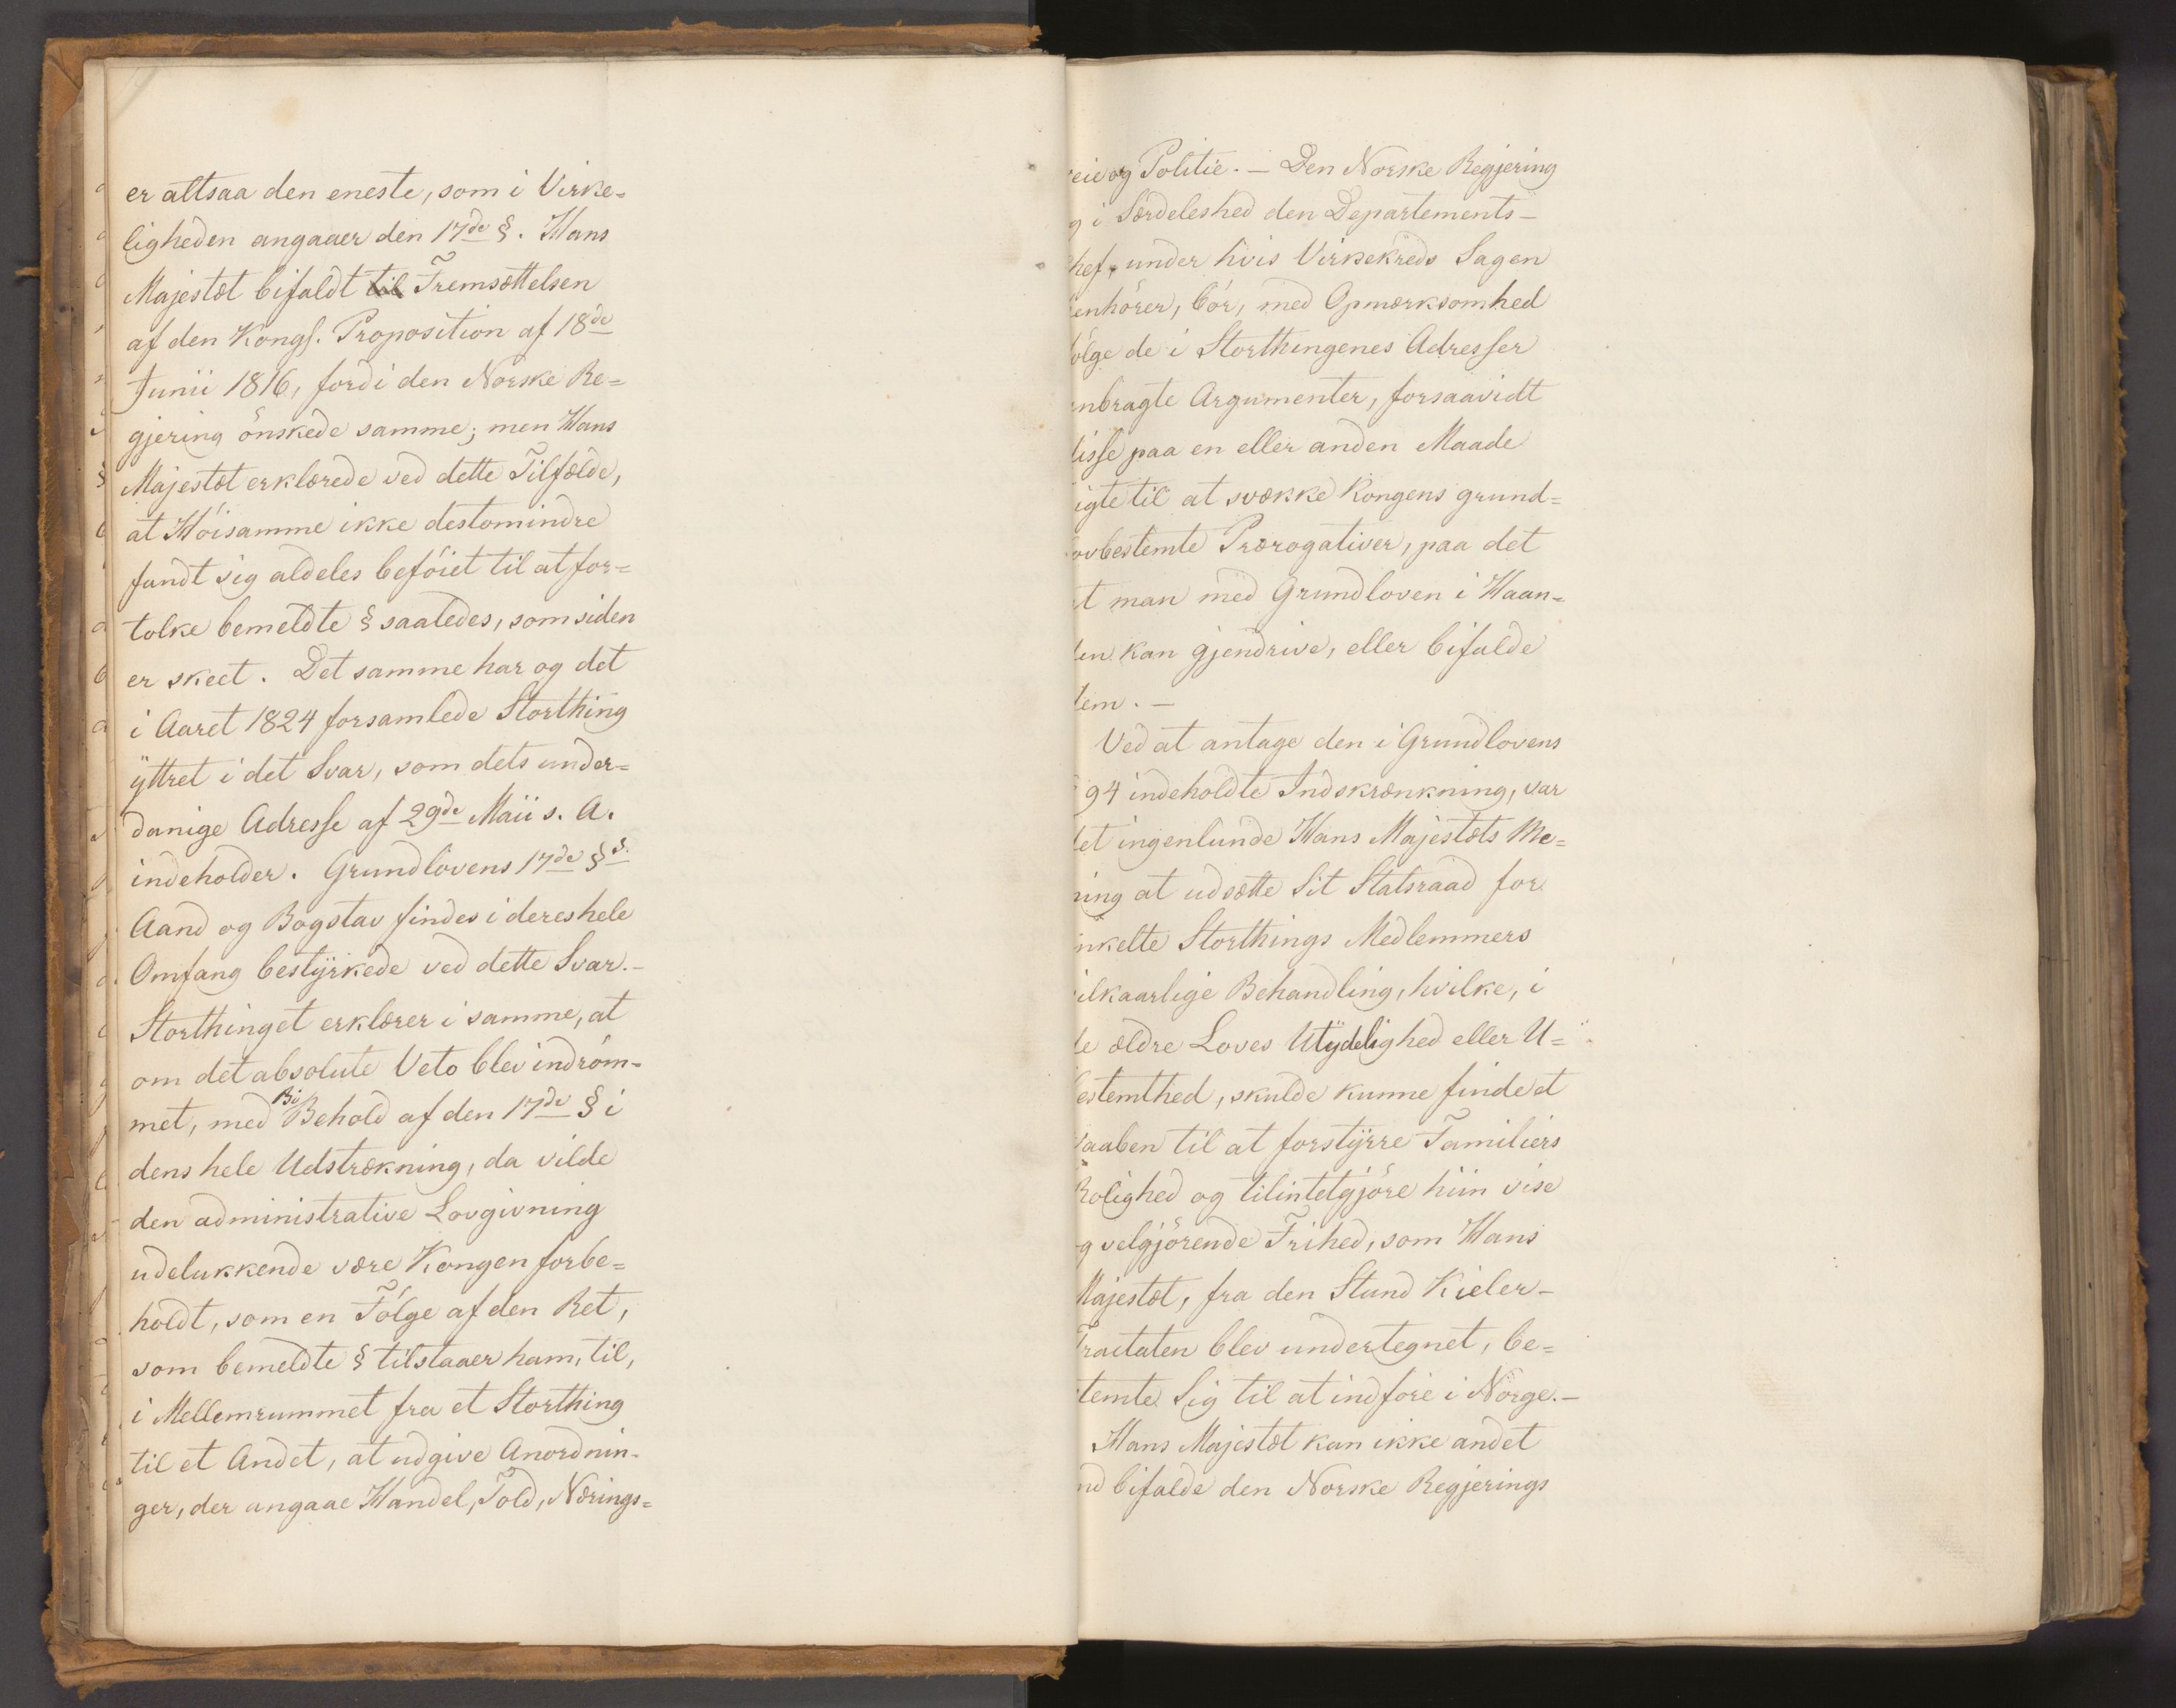 er altsaa den eneste, som i Virke=
ligheden angaaer den 17de §. Hans
Majestæt bifaldt til Fremsættelsen
af den Kongl. Proposition af 18de
Junii 1816, fordi den Norske Re=
gjering önskede samme; men Hans
Majestæt erklærede ved dette Tilfælde,
at Höisamme ikke destomindre
fandt sig aldeles beföiet til at for=
tolke bemeldte § saaledes, som siden
er skeet. Det samme har og det
i Aaret 1824 forsamlede Storthing
ÿttret i det Svar, som dets under=
danige Adresse af 29de Maii s. A.
indeholder. Grundlovens 17de §s.
Aand og Bogstav findes i deres hele
Omfang bestÿrkede ved dette Svar.-
Storthinget erklærer i samme, at
om det absolute Veto blev indröm-
Bi
met, med Behold af den 17de § i
dens hele Udstrækning, da vilde
den administrative Lovgivning
udelukkende være Kongen forbe=
holdt, som en Fölge af den Ret,
som bemeldte § tilstaaer ham, til,
i Mellemrummet fra et Storthing
til et Andet, at udgive Anordnin-
ger, der angaae Handel, Told, Nærings=
eie og Politie. - Den Norske Regjering
g i Særdeleshed den Departements-
hef, under hvis Virkekreds Sagen
enhörer, bör, med Opmærksomhed
ölge de i Storthingenes Adresser
nbragte Argumenter, forsaavidt
disse paa en eller anden Maade
igte til at svække Kongens grund=
ovbestemte Prærogativer, paa det
t man med Grundloven i Haan=
den kan gjendrive, eller bifalde
dem. -
Ved at antage den i Grundlovens
§ 94 indeholdte Indskrænkning, var
det ingenlunde Hans Majestæts Me=
ning at udsætte Sit Statsraad for
nkelte Storthings Medlemmers
ilkaarlige Behandling, hvilke, i
de ældre Loves Utÿdelighed eller U=
estemthed, skulde kunne finde et
Vaaben til at forstÿrre Familiers
Rolighed og tilintetgjöre hiin vise
g velgjörende Frihed, som Hans
Majestæt, fra den Stund Kieler-
Tractaten blev undertegnet, be=
temte Sig til at indföre i Norge.-
Hans Majestæt kan ikke andet
nd bifalde den Norske Regjerings